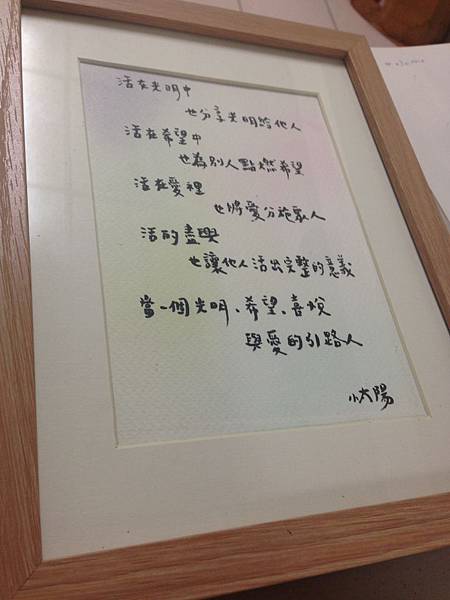 活在光明中
也分享光明給他人
活在希望中
也為別人點燃希望
活在愛裡
也將愛分施眾人
活的盡興
也讓他人活出完整的意義
當一個光明、希望、喜悅
與愛的引路人
小太陽